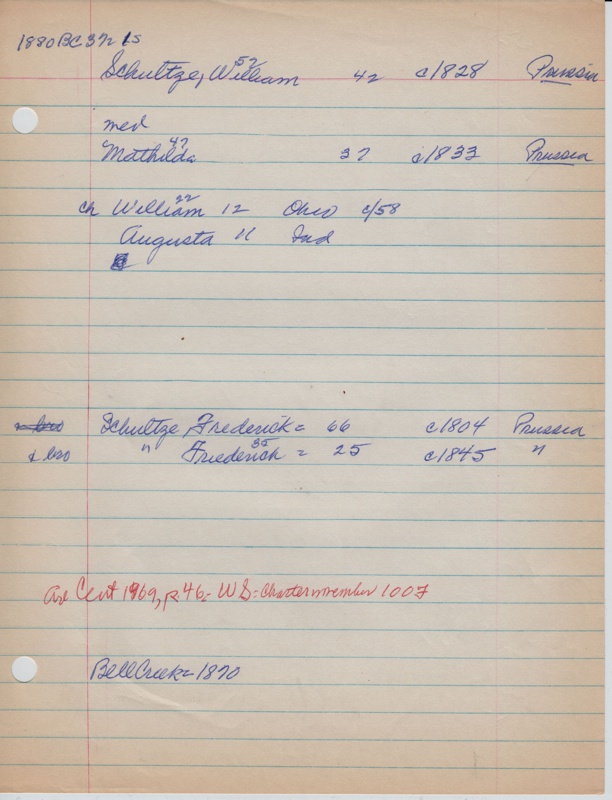 1880 BC 372 15
52
Schultze, William 42 c1828 Prussia
med
47
Mathilda 37 c1833 Prussia
22
ch William 12 Ohio c/58
Augusta 11 Ind
Schultze, Frederick = 66 c1804 Prussia
35
& bro " Friederich = 25 c1845 "
Cent 1969, p 46 = WS = Charter member 100F
Bell Creek = 1870